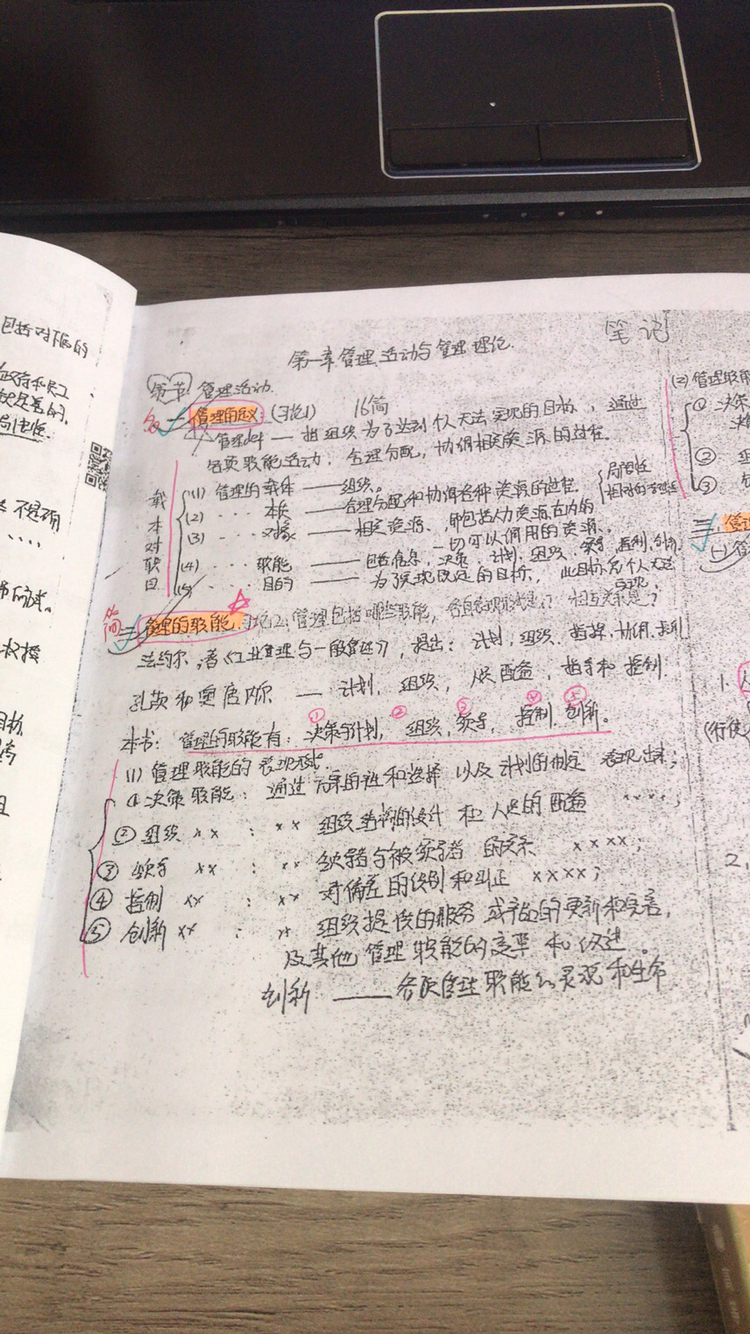 包括对下属的
笔记
第一章 管理活动与管理理论
第一节 管理活动
名 一 管理的定义：(习论1) 16简
管理 — 指组织为了达到个人无法实现的目标，通过
各项职能活动，合理分配，协调相关资源的过程。
载本对职目
(1) 管理的载体 —— 组织。
(2) ‥‥ 本质 —— 合理分配和协调各种资源的过程。
(3) ‥‥ 对象 —— 相关资源，即包括人力资源在内的
一切可以调用的资源。
(4) ‥‥ 职能 —— 包括信息，决策，计划，组织，领导，控制，创新
(5) ‥‥ 目的 —— 为了实现既定的目标，此目标为个人无法
实现。
简 二 管理的职能 ☆ 习论2：管理包括哪些职能，各自表现形式是？相互关系是？
法约尔，著《工业管理与一般管理》，提出：计划，组织，指挥，协调，控制
孔茨和奥唐内尔 — 计划，组织，人员配备，指导和控制
本书：管理的职能有：①决策与计划，②组织，③领导，④控制，⑤创新。
(1) 管理职能的表现形式：
① 决策职能：通过方案的产生和选择以及计划的制定 表现出来；
② 组织 ×× ： ×× 组织结构的设计和人员的配备 ××××；
③ 领导 ×× ： ×× 领导者与被领导者的关系 ××××；
④ 控制 ×× ： ×× 对偏差的识别和纠正 ××××；
⑤ 创新 ×× ： ×× 组织提供的服务或产品的更新和完善，
及其他管理职能的变革和改进。
创新 —— 各项管理职能的灵魂和生命
(2) 管理职能
① 决策
②
③
1.
(行使
2.